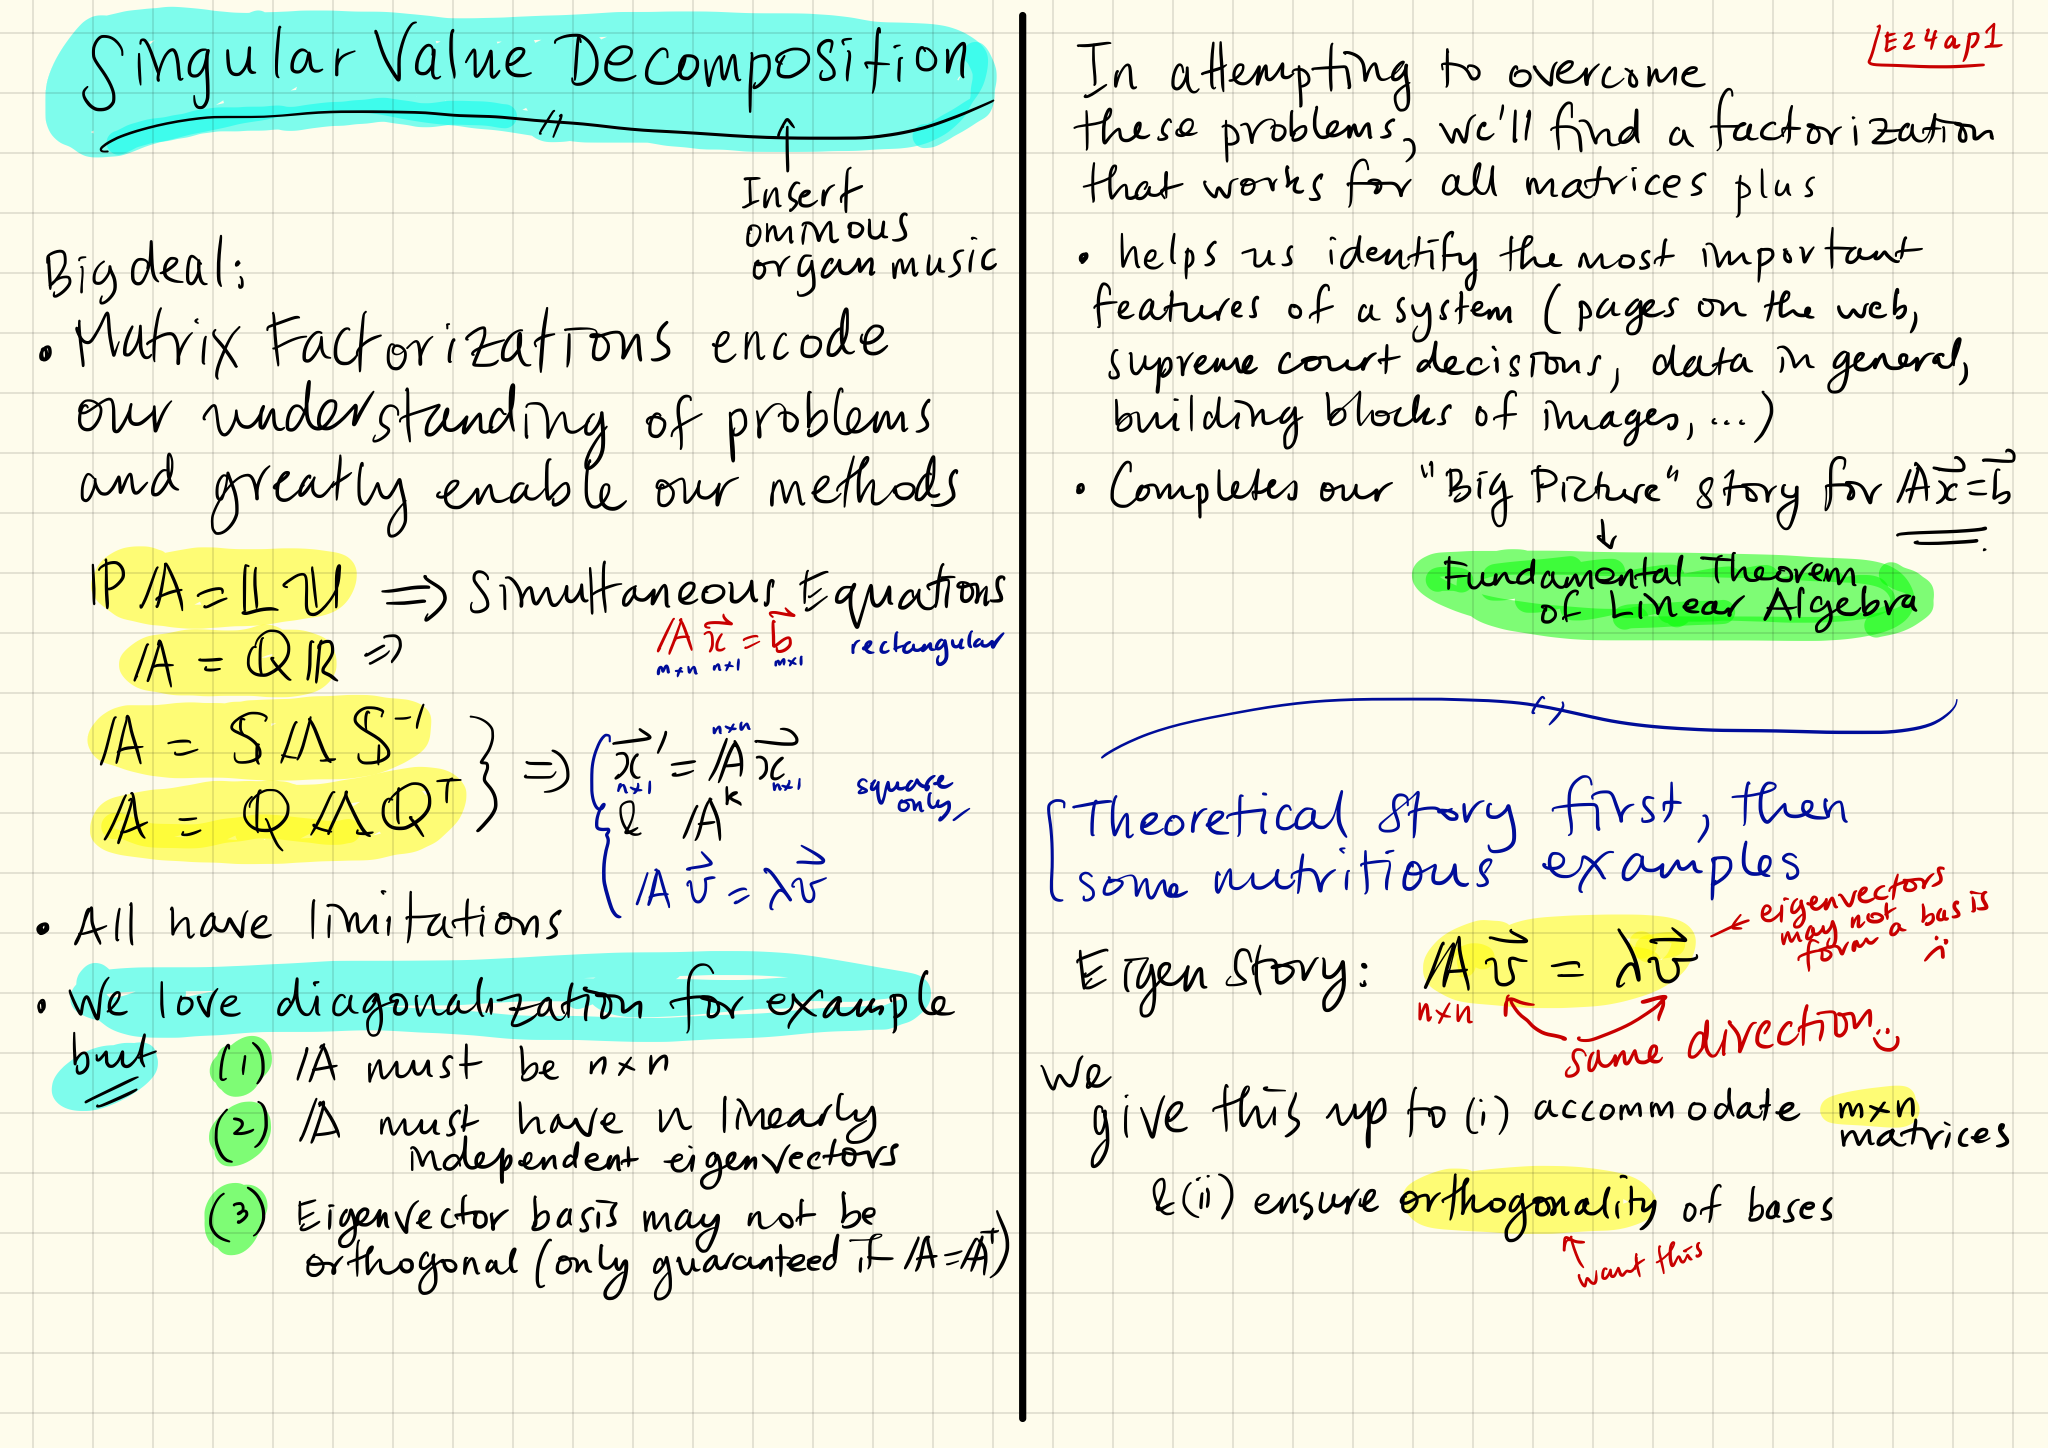 Singular Value Decomposition
↑
Insert
ominous
organ music
Big deal:
• Matrix Factorizations encode
our understanding of problems
and greatly enable our methods
ℙ𝔸 = 𝕃𝕌 ⇒ Simultaneous Equations
𝔸 = ℚℝ ⇒
𝔸x⃗ = b⃗ rectangular
m×n n×1 m×1
𝔸 = 𝕊Λ𝕊⁻¹
𝔸 = ℚΛℚᵀ
} ⇒ { x⃗' = 𝔸x⃗
n×1 n×n n×1
& 𝔸ᵏ
𝔸v⃗ = λv⃗
square
only,
• All have limitations
• We love diagonalization for example
but (1) 𝔸 must be n×n
(2) 𝔸 must have n linearly
independent eigenvectors
(3) Eigenvector basis may not be
orthogonal (only guaranteed if 𝔸=𝔸ᵀ)
E24ap1
In attempting to overcome
these problems, we'll find a factorization
that works for all matrices plus
• helps us identify the most important
features of a system (pages on the web,
supreme court decisions, data in general,
building blocks of images, ...)
• Completes our "Big Picture" story for 𝔸x⃗=b⃗
↓
Fundamental Theorem
of Linear Algebra
Theoretical story first, then
some nutritious examples
Eigen story: 𝔸v⃗ = λv⃗
n×n
← eigenvectors
may not
form a basis
:(
same direction :)
We
give this up to (i) accommodate m×n
matrices
& (ii) ensure orthogonality of bases
↑
want this